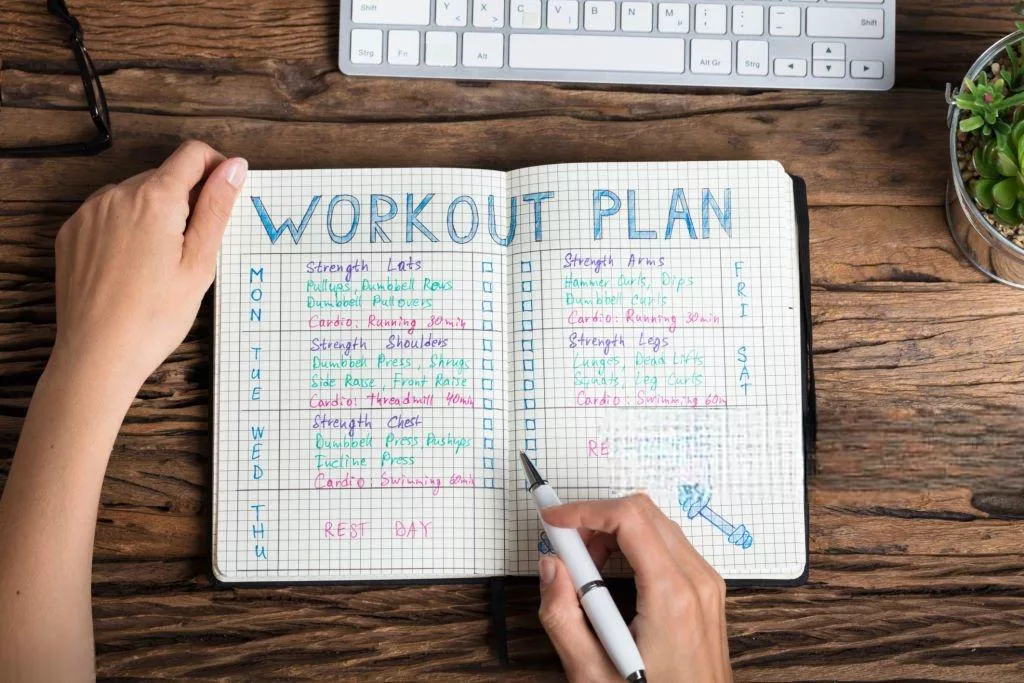 Shift Y < X > C V B N M µ ; : - Shift
Strg Fn Alt Alt Gr Strg
WORKOUT PLAN
MON
Strength Lats
Pullups, Dumbbell Rows
Dumbbell Pullovers
Cardio: Running 30min
TUE
Strength Shoulders
Dumbbell Press, Shrugs
Side Raise, Front Raise
Cardio: Threadmill 40min
WED
Strength Chest
Dumbbell Press, Pushups
Incline Press
Cardio: Swimming 60min
THU
REST DAY
Strength Arms
Hammer Curls, Dips
Dumbbell Curls
Cardio: Running 30min
FRI
Strength Legs
Lunges, Dead Lifts
Squats, Leg Curls
Cardio: Swimming 60m
SAT